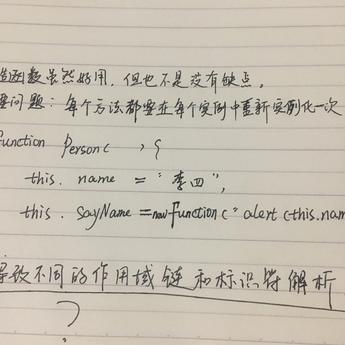 造函数虽然好用,但也不是没有缺点。
要问题:每个方法都要在每个实例中重新实例化一次
function Person( , {
this. name = "李四",
this. sayName = new Function(" alert (this.nam
导致不同的作用域链和标识符解析